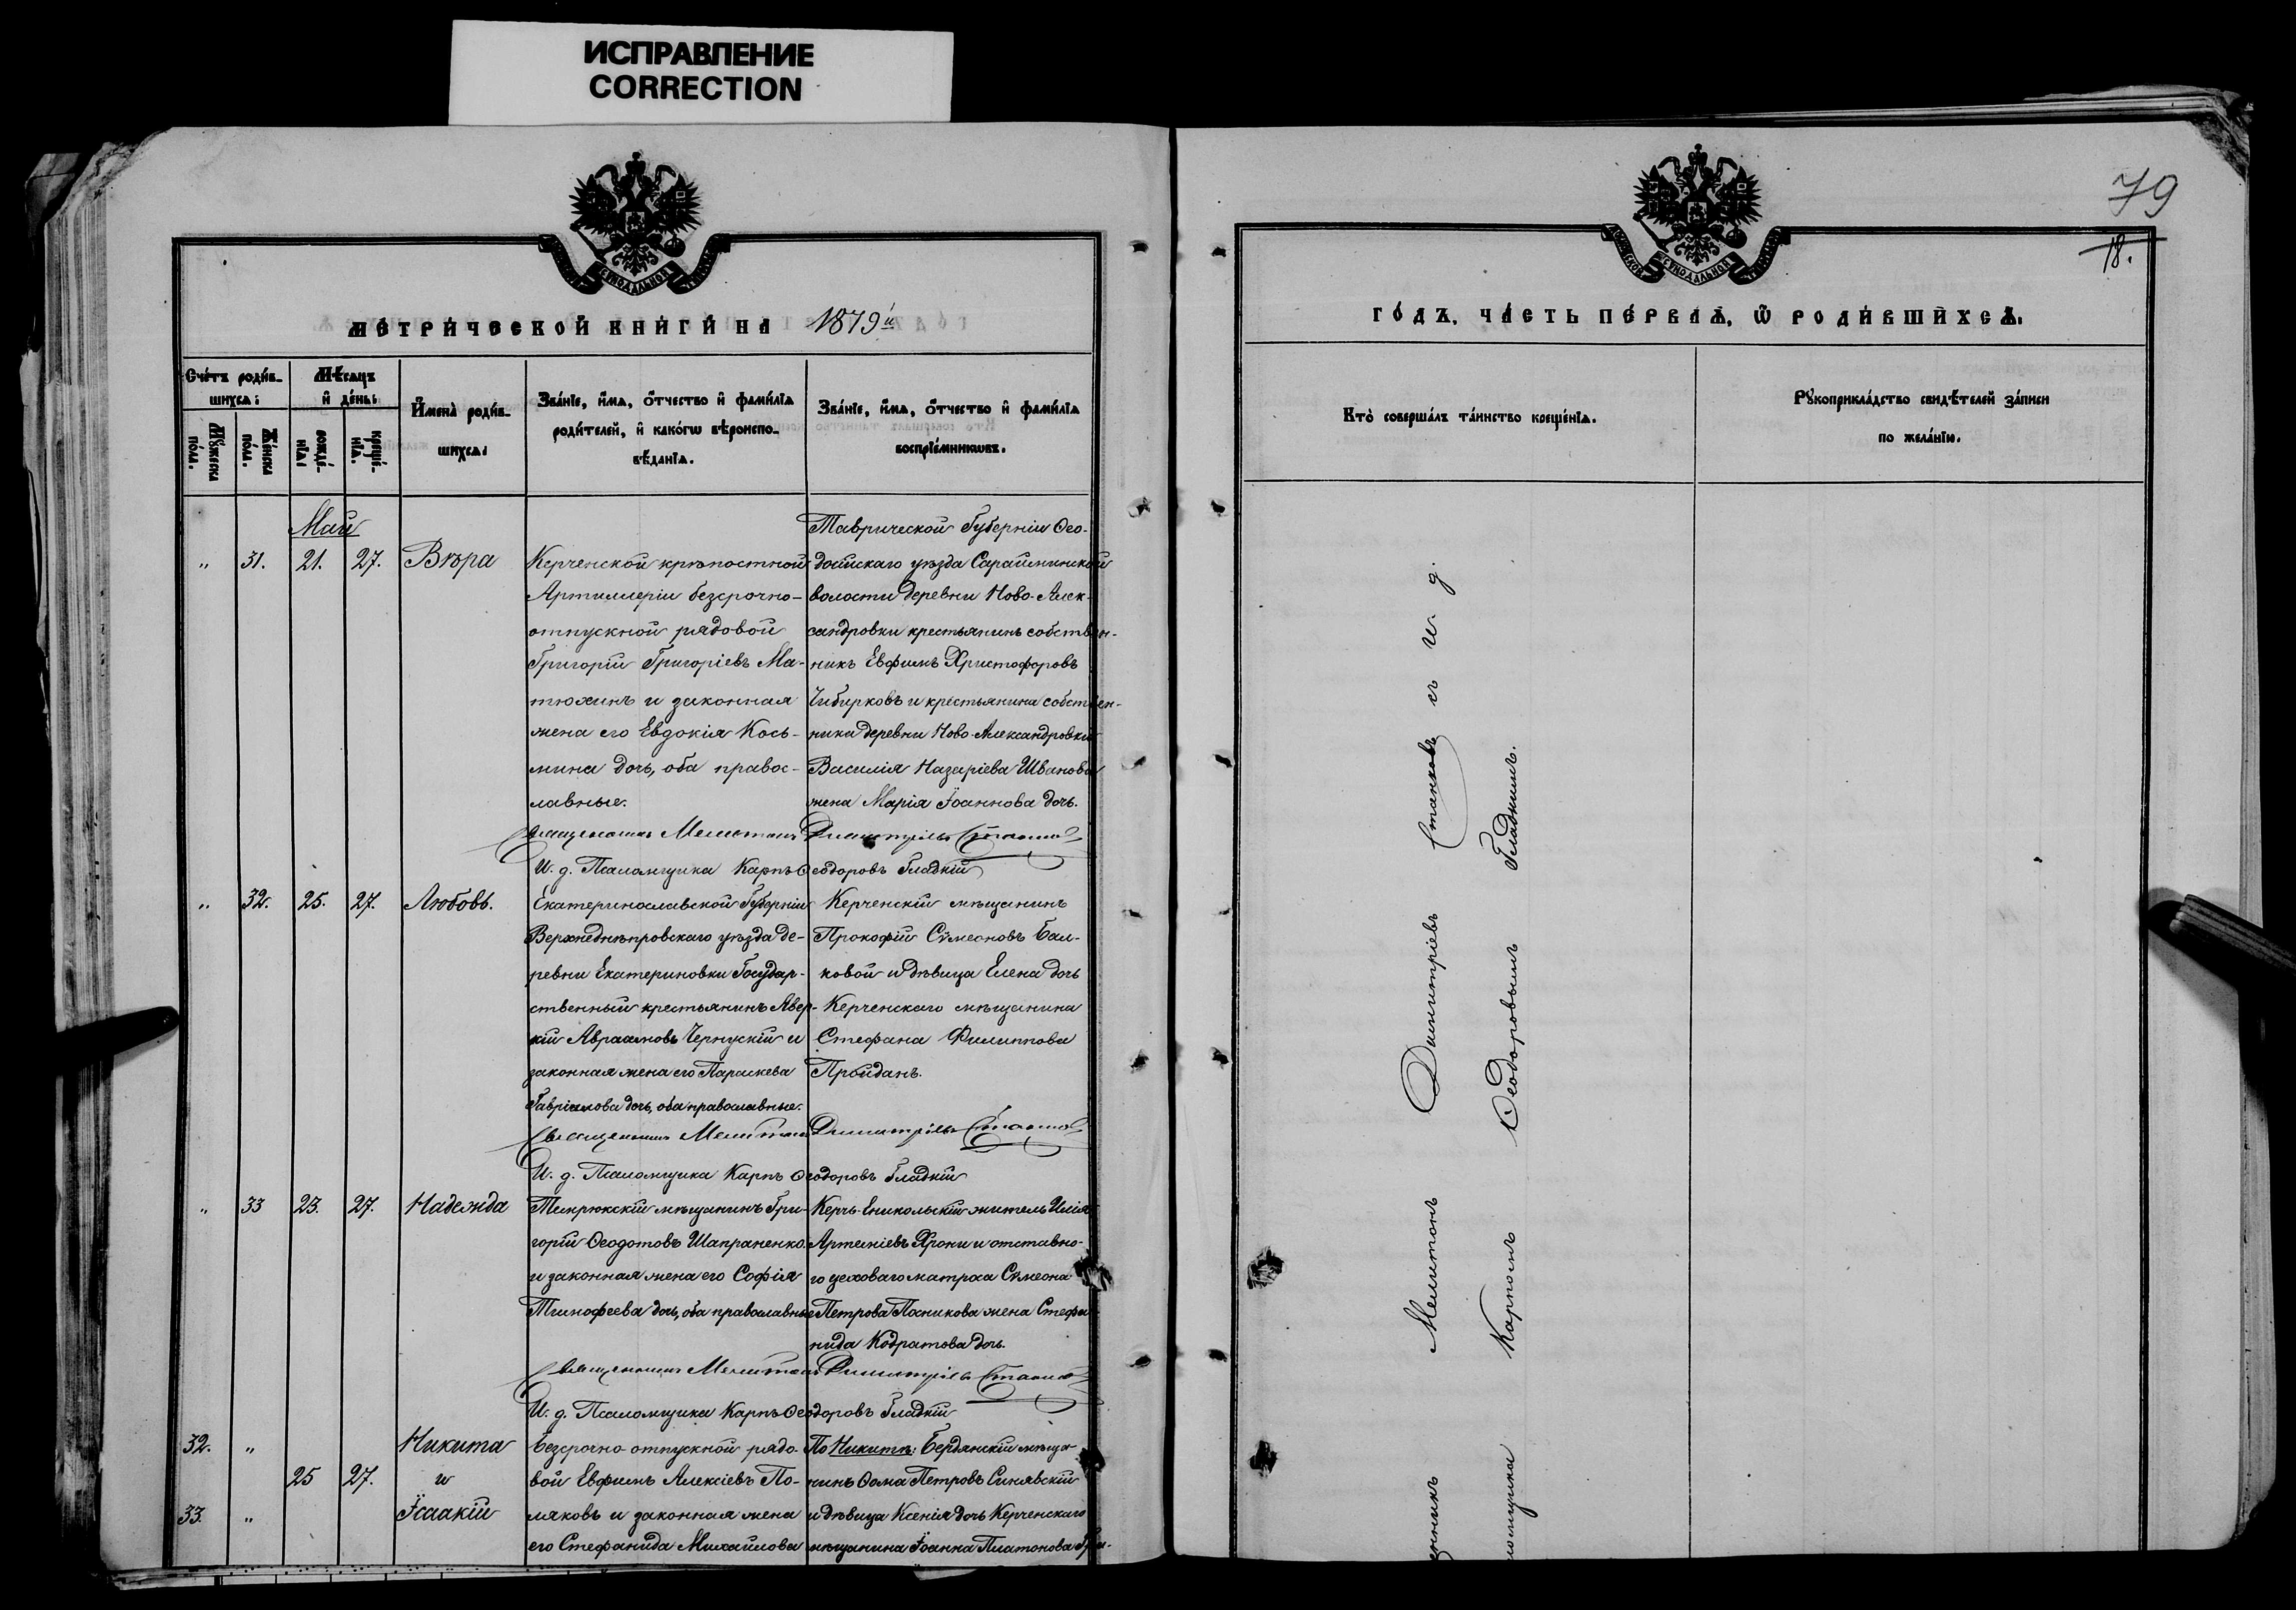 ИСПРАВЛЕНИЕ
CORRECTION
МЕТРИЧЕСКОЙ КНИГИ НА 1879й
Счетъ родив-
шихся:
Мѣсяцъ
и день:
Мужеска
пола.
Женска
пола.
рожде-
нія:
креще-
нія.
Имена родив-
шихся:
Званіе, имя, отчество и фамилія
родителей, и какогѡ вѣроиспо-
вѣданія.
Званіе, имя, отчество и фамилія
воспріемникѡвъ.
Май
„ 31. 21. 27. Вѣра
Керченской крѣпостной
Артиллеріи безсрочно-
отпускной рядовой
Григорій Григоріевъ Ма-
тюхинъ и законная
жена его Евдокія Кось-
мина дочь, оба правос-
лавные.
Таврической Губерніи Ѳео-
досійскаго уѣзда Сарайминской
волости деревни Ново-Алек-
сандровки крестьянинъ собствен-
никъ Евфимъ Христофоровъ
Чибирковъ и крестьянина собствен-
ника деревни Ново-Александровки
Василія Назаріева Иванова
жена Марія Іоаннова дочь.
Священникъ Мелитонъ Димитріевъ Станковъ
И. д. Псаломщика Карпъ Ѳеодоровъ Гладкій
„ 32. 25. 27. Любовь.
Екатеринославской Губерніи
Верхнеднѣпровскаго уѣзда де-
ревни Екатериновки Государ-
ственный крестьянинъ Авер-
кій Авраамовъ Чернускій и
законная жена его Параскева
Гавріилова дочь, оба православные.
Керченскій мѣщанинъ
Прокофій Сѵмеоновъ Бал-
ковой и дѣвица Елена дочь
Керченскаго мѣщанина
Стефана Филиппова
Пройданъ.
Священникъ Мелитонъ Димитріевъ Станковъ
И. д. Псаломщика Карпъ Ѳеодоровъ Гладкій
„ 33 23. 27. Надежда
Темрюкскій мѣщанинъ Гри-
горій Ѳеодотовъ Шапраненко
и законная жена его Софія
Тимофеева дочь, оба православные
Керчь-Еникольскій житель Илія
Артеміевъ Хрони и отставно-
го цеховаго матроса Сѵмеона
Петрова Пасникова жена Стефа-
нида Кодратова дочь.
Священникъ Мелитонъ Димитріевъ Станковъ
И. д. Псаломщика Карпъ Ѳеодоровъ Гладкій
32. „ Никита
25 27. и
33. „ Ісаакій
Безсрочно-отпускной рядо-
вой Евфимъ Алексіевъ По-
ляковъ и законная жена
его Стефанида Михайлова
По Никитѣ: Бердянскій мѣща-
нинъ Ѳома Петровъ Синявскій
и дѣвица Ксенія дочь Керченскаго
мѣщанина Іоанна Платонова
79
18.
ГОДЪ, ЧАСТЬ ПЕРВАЯ, Ѡ РОДИВШИХСЯ.
Кто совершалъ таинство крещенія.
Рукоприкладство свидѣтелей записи
по желанію.
Мелитонъ Димитріевъ Станковъ съ и. д.
Карпомъ Ѳеодоровымъ Гладкимъ.